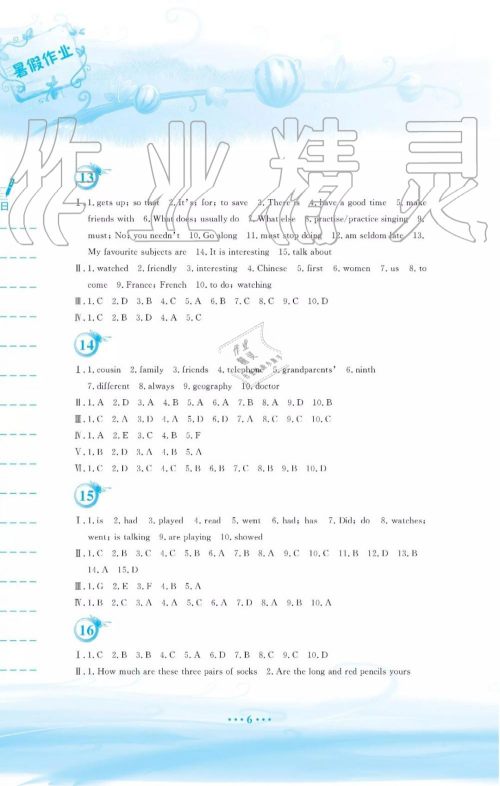 暑假作业
作业精灵
日
13
Ⅰ.1. gets up; so that 2. It's; for; to save 3. There is 4. have a good time 5. make
friends with 6. What does; usually do 7. What else 8. practise/practice singing 9.
must; No; you needn't 10. Go along 11. must stop doing 12. am seldom late 13.
My favourite subjects are 14. It is interesting 15. talk about
Ⅱ.1. watched 2. friendly 3. interesting 4. Chinese 5. first 6. women 7. us 8. to
come 9. France; French 10. to do; watching
Ⅲ.1. C 2. D 3. B 4. C 5. A 6. B 7. C 8. C 9. C 10. D
Ⅳ.1. C 2. B 3. D 4. A 5. C
14
Ⅰ.1. cousin 2. family 3. friends 4. telephone 5. grandparents' 6. ninth
7. different 8. always 9. geography 10. doctor
Ⅱ.1. A 2. D 3. A 4. B 5. A 6. A 7. B 8. A 9. D 10. B
Ⅲ.1. C 2. A 3. D 4. A 5. D 6. D 7. A 8. C 9. C 10. C
Ⅳ.1. A 2. E 3. C 4. B 5. F
Ⅴ.1. B 2. D 3. A 4. B 5. A
Ⅵ.1. C 2. D 3. C 4. C 5. B 6. B 7. C 8. B 9. B 10. D
15
Ⅰ.1. is 2. had 3. played 4. read 5. went 6. had; has 7. Did; do 8. watches;
went; is talking 9. are playing 10. showed
Ⅱ.1. C 2. B 3. C 4. C 5. B 6. A 7. A 8. D 9. C 10. C 11. B 12. D 13. B
14. A 15. D
Ⅲ.1. G 2. E 3. F 4. B 5. A
Ⅳ.1. B 2. C 3. A 4. A 5. C 6. A 7. D 8. A 9. B 10. A
16
Ⅰ.1. C 2. B 3. B 4. C 5. A 6. D 7. B 8. C 9. C 10. D
Ⅱ.1. How much are these three pairs of socks 2. Are the long and red pencils yours
···6···